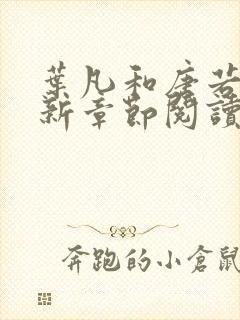 葉凡和唐若
新章節閱讀
奔跑的小倉鼠